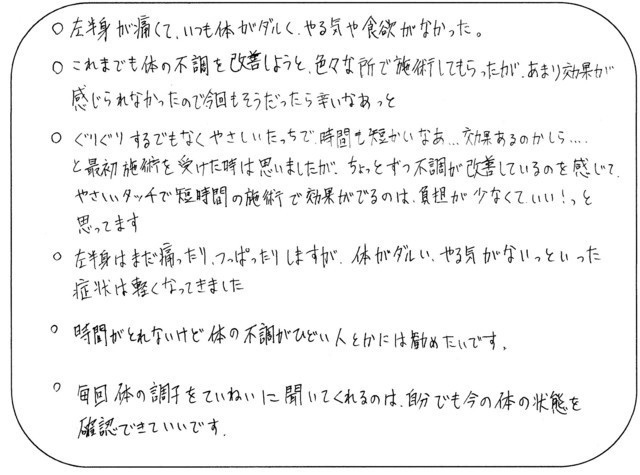 ○ 左半身が痛くて、いつも体がダルく、やる気や食欲がなかった。
○ これまでも体の不調を改善しようと、色々な所で施術してもらったが、あまり効果が
感じられなかったので今回もそうだったら辛いなあっと
○ ぐりぐりするでもなくやさしいたっちで、時間も短かいなあ…効果あるのかしら….
と最初施術を受けた時は思いましたが、ちょっとずつ不調が改善しているのを感じて、
やさいいタッチで短時間の施術で効果がでるのは、負担が少なくていい！っと
思ってます
○ 左半身はまだ痛ったり、つっぱったりしますが、体がダルい、やる気がないっといった
症状は軽くなってきました
○ 時間がとれないけど体の不調がひどい人とかには勧めたいです。
○ 毎回体の調子をていねいに聞いてくれるのは、自分でも今の体の状態を
確認できていいです.